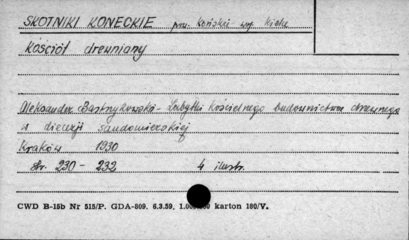 SKOTNIKI KONECKIE pow. Końskie woj. Kielce
kościół drewniany
Aleksander Bastrzykowski - Zabytki kościelnego budownictwa drewnego
w diecezji sandomierskiej
Kraków 1930
str. 230 - 232 4 ilustr.
CWD B-15b Nr 515/P. GDA-809. 6.3.59. karton 180/V.